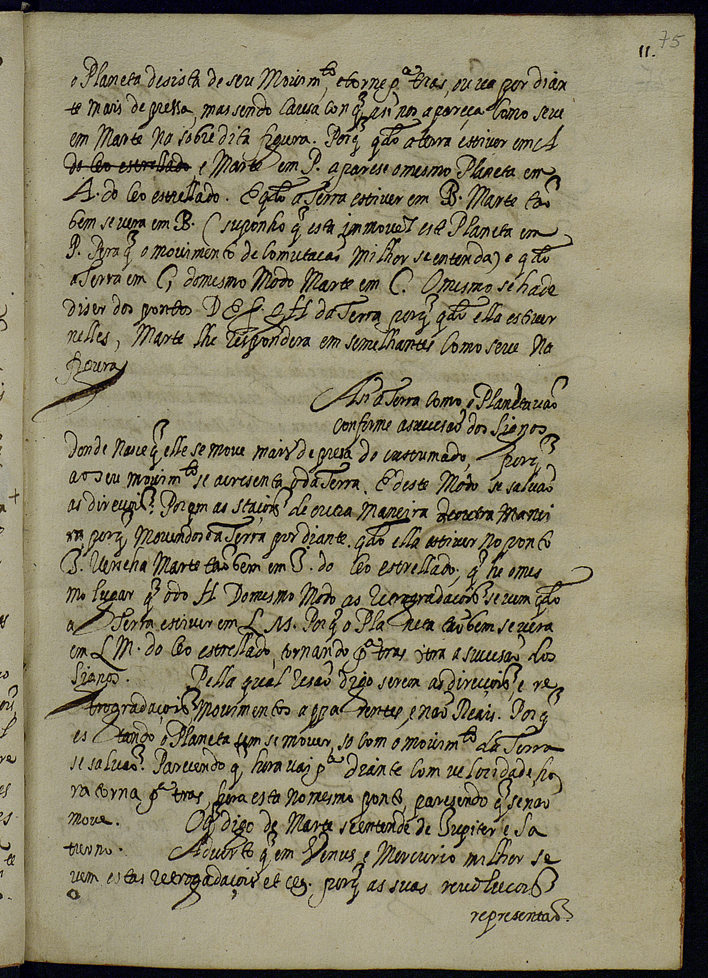 75
11.
o Planeta desista de seu Movim.to, e torne p.a tras, ou va por dian
te mais de pressa, mas sendo causa con q̃ asi nos apareça como se ve
em Marte na sobredita figura. Porq̃ qdo a terra estiver em A
do Ceo estrellado e Marte em P. aparese o mesmo Planeta em
A. do Ceo estrellado. E qdo a Terra estiver em B. Marte tão
bem se vera em B. (suponho q̃ esta immovel este Planeta em
P. Pera q̃ o movimento de comutação milhor se entenda) e qdo
a Terra em C, do mesmo Modo Marte em C. O mesmo se ha de
diser dos pontos D E F. G H da Terra porq̃ qdo ella estiver
nelles, Marte lhe respondera em semelhantes como se ve na
figura
Asi a Terra como o Planeta vão
confirme a sucesaõ dos Signos
donde nasce q̃ elle se move mais depresa do custumado, porq̃
ao seu movim.to se acresenta o da Terra. E deste Modo se salvão
as direçois. Porem as staçois de outra Maneira de outra Manei
ra porq̃ Movendose a Terra por diante qdo ella estiver no ponto
I. Uenha Marte tão bem em I. do Ceo estrellado, q̃ he o mes
mo lugar q̃ o do H Do mesmo Modo as retrogradaçois se vem qdo
a Terra estiver em L M. Porq̃ o Planeta tão bem se vera
em L M. do Ceo estrellado, tornando p.a tras contra a sucesão dos
Signos. Pella qual resão digo serem as direçois e re
trogradaçois Movimentos apparentes e não Reais. Porq̃
estando o Planeta sem se mover, so com o movim.to da Terra
se salvão. Paresendo q̃ hora vai p.a diante com velocidade, ho
ra torna p.a tras, hora esta no mesmo ponto, paresendo q̃ se não
move. O q̃ digo de Marte se entende de Jupiter e Sa
turno. Adverto q̃ em Venus e Mercurio milhor se
vem estas retrogadaçois et ce.s porq̃ as suas revoluçois
representão